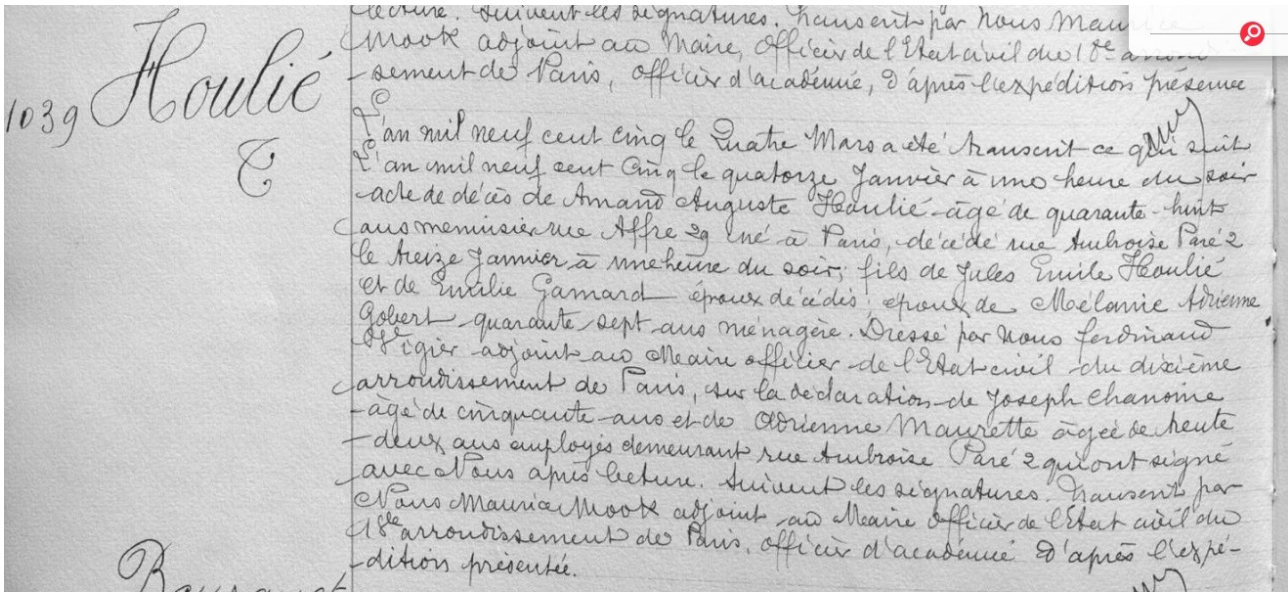 lecture. Suivent les signatures. Transcrit par Nous Mau
Mook adjoint au Maire, Officier de l'Etat civil du 18e arrondis
-sement de Paris, officier d'académie, D'après l'expédition présentée
1039 Houlié
T
L'an mil neuf cent cinq le Quatre Mars a été transcrit ce qui suit
L'an mil neuf cent Cinq le quatorze Janvier à une heure du soir
acte de décès de Amand Auguste Houlié âgé de quarante-huit
ans menuisier rue Affre 29 né à Paris, décédé rue Ambroise Paré 2
le treize Janvier à une heure du soir; fils de Jules Emile Houlié
et de Emilie Gamard époux décédés; époux de Mélanie Adrienne
Gobert quarante-sept ans ménagère. Dressé par Nous ferdinand
Vigier adjoint au Maire officier de l'Etat civil du dixième
arrondissement de Paris, sur la déclaration de Joseph Chanoine
âgé de cinquante ans et de Adrienne Maurette âgée de trente
-deux ans employés demeurant rue Ambroise Paré 2 qui ont signé
avec Nous après lecture. Suivent les signatures. Transcrit par
Nous Maurice Mook adjoint au Maire Officier de l'Etat civil du
18e arrondissement de Paris, officier d'académie D'après l'expé-
-dition présentée.